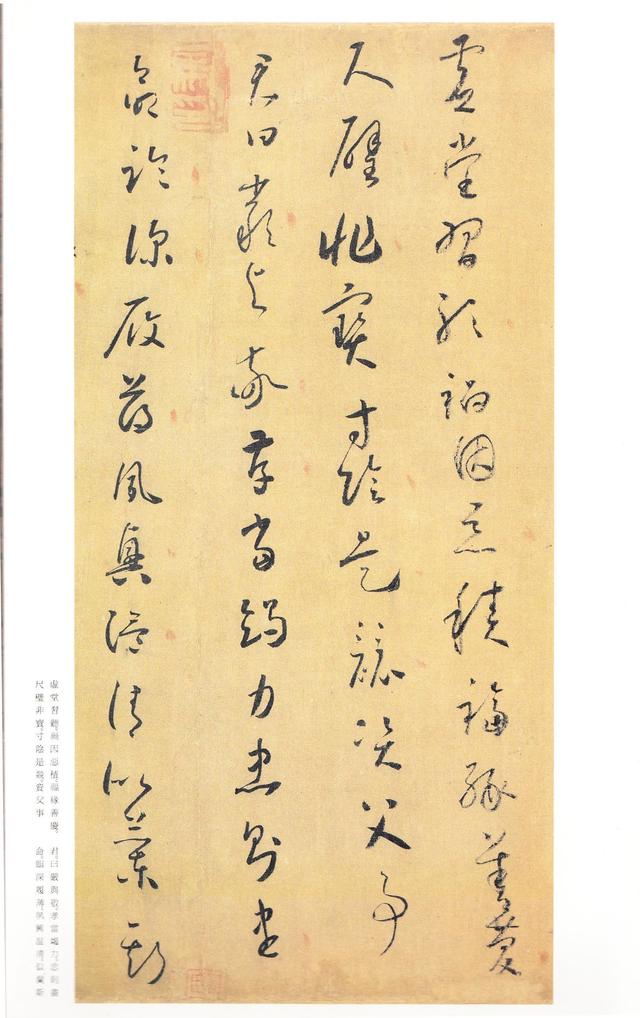 虛堂習聽禍因惡積福緣善慶
尺璧非寶寸陰是競資父事
君曰嚴與敬孝當竭力忠則盡
命臨深履薄夙興溫凊似蘭斯
虛堂習聽。禍因惡積。福緣善慶。
尺璧非寶。寸陰是競。資父事
君。曰嚴與敬。孝當竭力。忠則盡
命。臨深履薄。夙興溫凊。似蘭斯